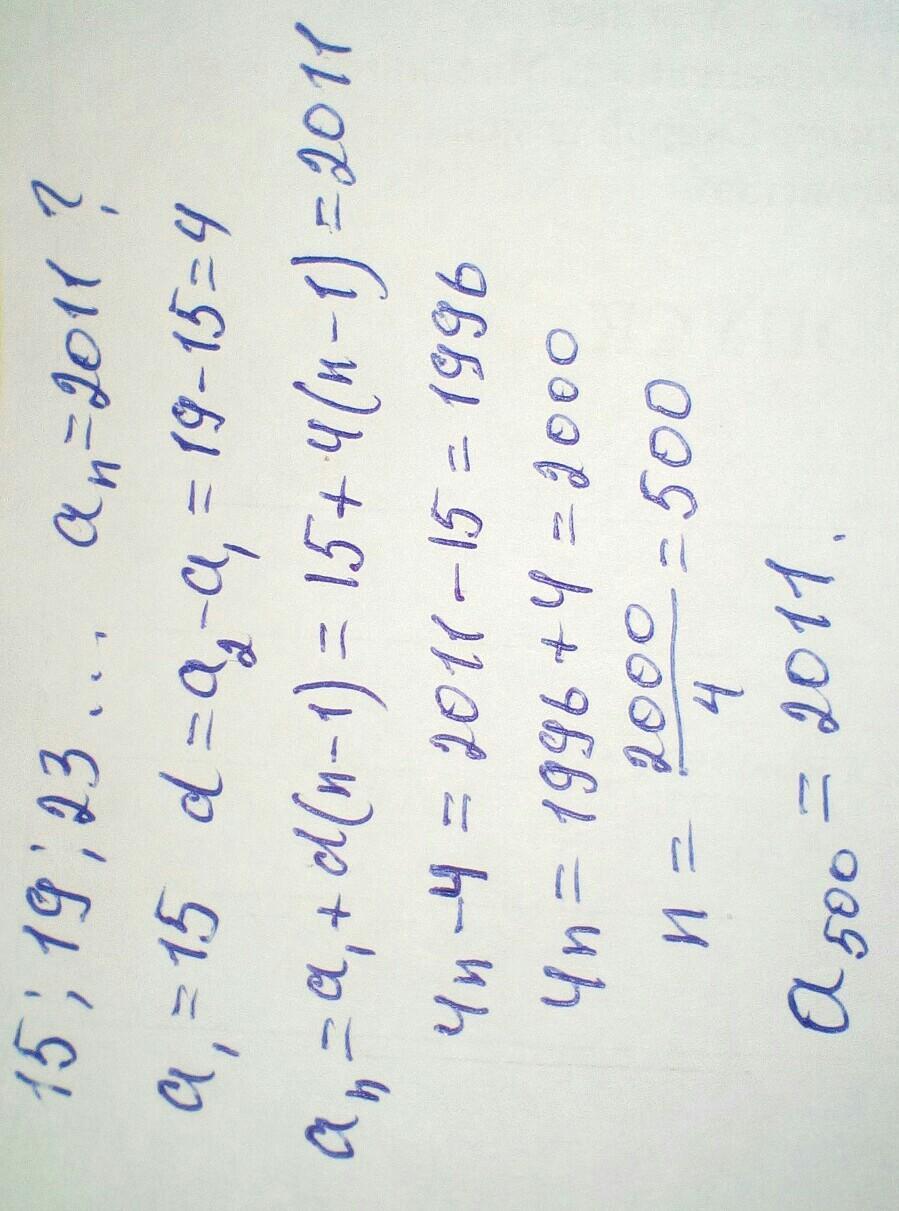 15; 19; 23 ... aₙ=2011 ?
a₁=15 d=a₂-a₁=19-15=4
aₙ=a₁+d(n-1)=15+4(n-1)=2011
4n-4=2011-15=1996
4n=1996+4=2000
n=2000/4=500
a₅₀₀=2011.